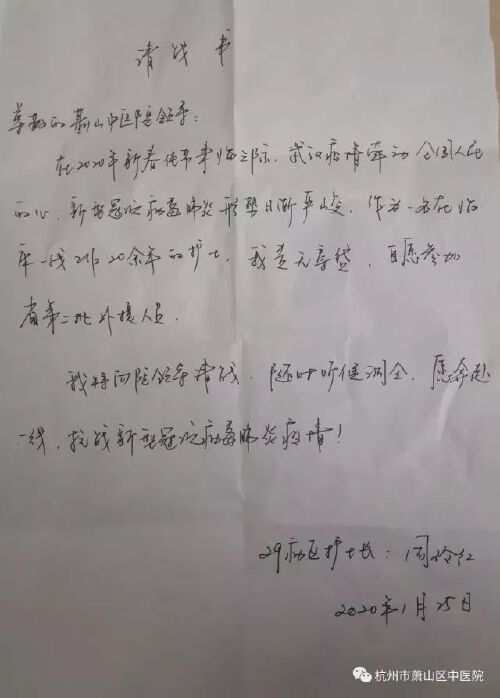 请战书
尊敬的萧山中医院领导：
在2020年新春佳节来临之际，武汉疫情牵动全国人民
的心，新型冠状病毒肺炎形势日渐严峻，作为一名在临
床一线工作20余年的护士，我责无旁贷，自愿参加
省第二批外援人员。
我特向院领导请战，随时听候调令，愿奔赴
一线，抗战新型冠状病毒肺炎疫情！
29病区护士长：周
2020年1月25日
杭州市萧山区中医院